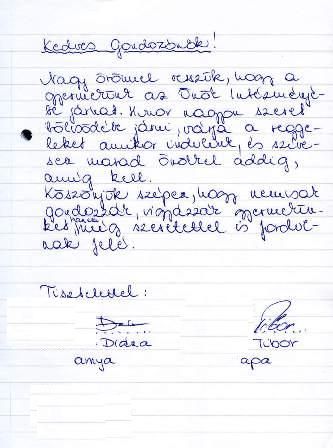 Kedves Gondozónők!
Nagy örömmel vesszük, hogy a
gyermekünk az Önök Intézményé-
be járhat. Hunor nagyon szeret
bölcsődébe járni, várja a regge-
leket amikor indulunk, és szíve-
sen marad önökkel addig,
amíg kell.
Köszönjük szépen, hogy nemcsak
gondozzák, vigyázzák gyermekün-
ket, hanem még szeretettel is fordul-
nak felé.
Tisztelettel:
Diána
Tibor
Diána
Tibor
anya
apa